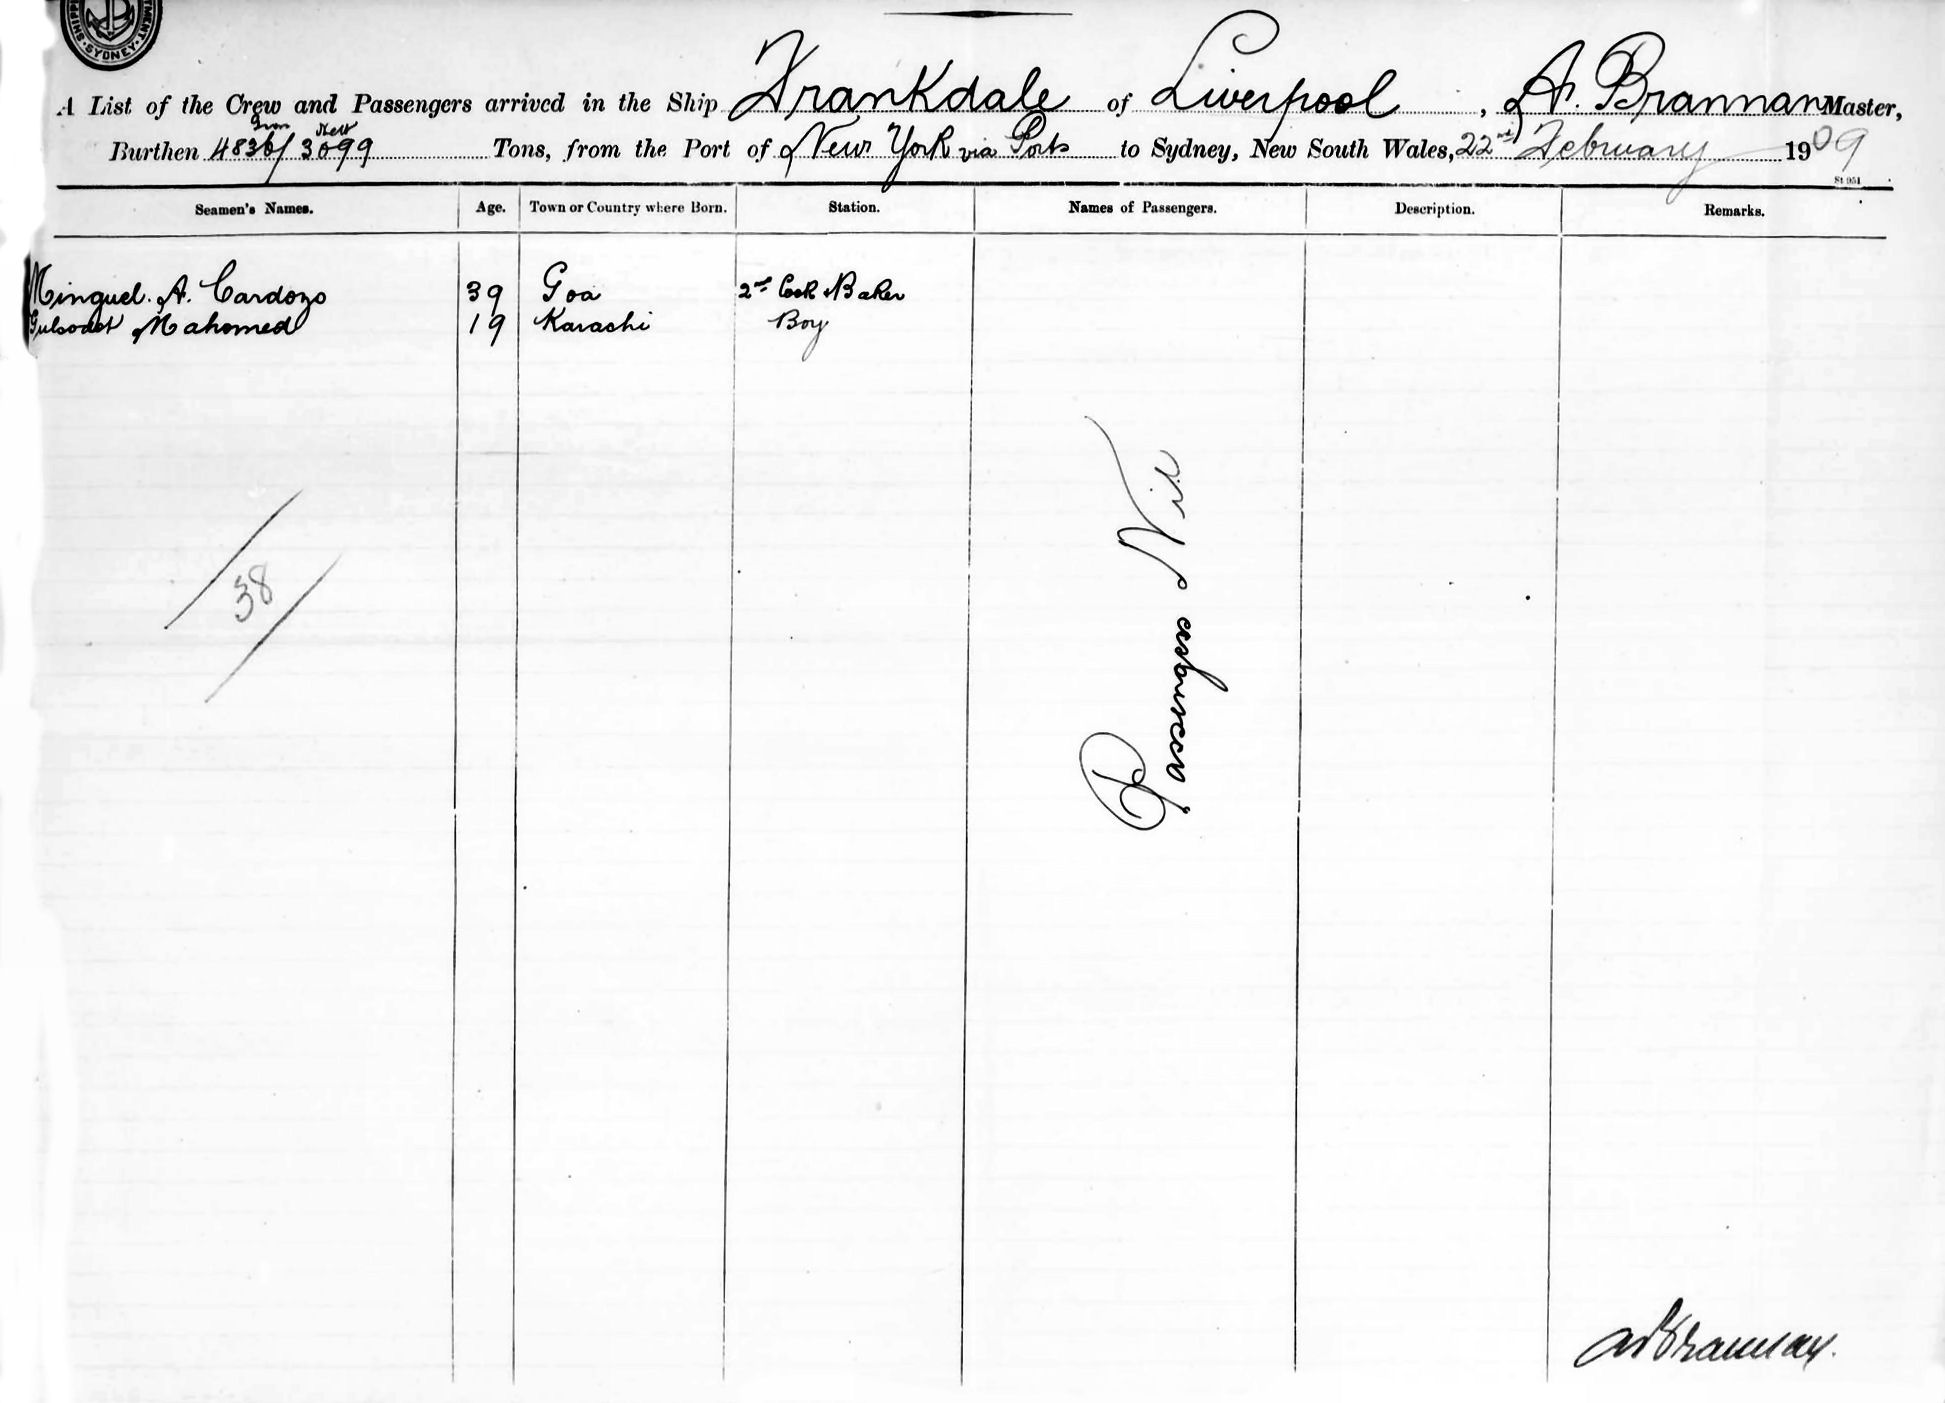 SHIPPI
TMENT
SYDNEY
A List of the Crew and Passengers arrived in the Ship Frankdale of Liverpool, A. Brannan Master,
Gross Nett
Burthen 4836/3099 Tons, from the Port of New York via Ports to Sydney, New South Wales, 22nd February 1909
St 951
Seamen's Names. Age. Town or Country where Born. Station. Names of Passengers. Description. Remarks.
Minguel. A. Cardozo 39 Goa 2nd Cook & Baker
Mahomed 19 Karachi Boy
Passengers Nil
38
A Brannan.